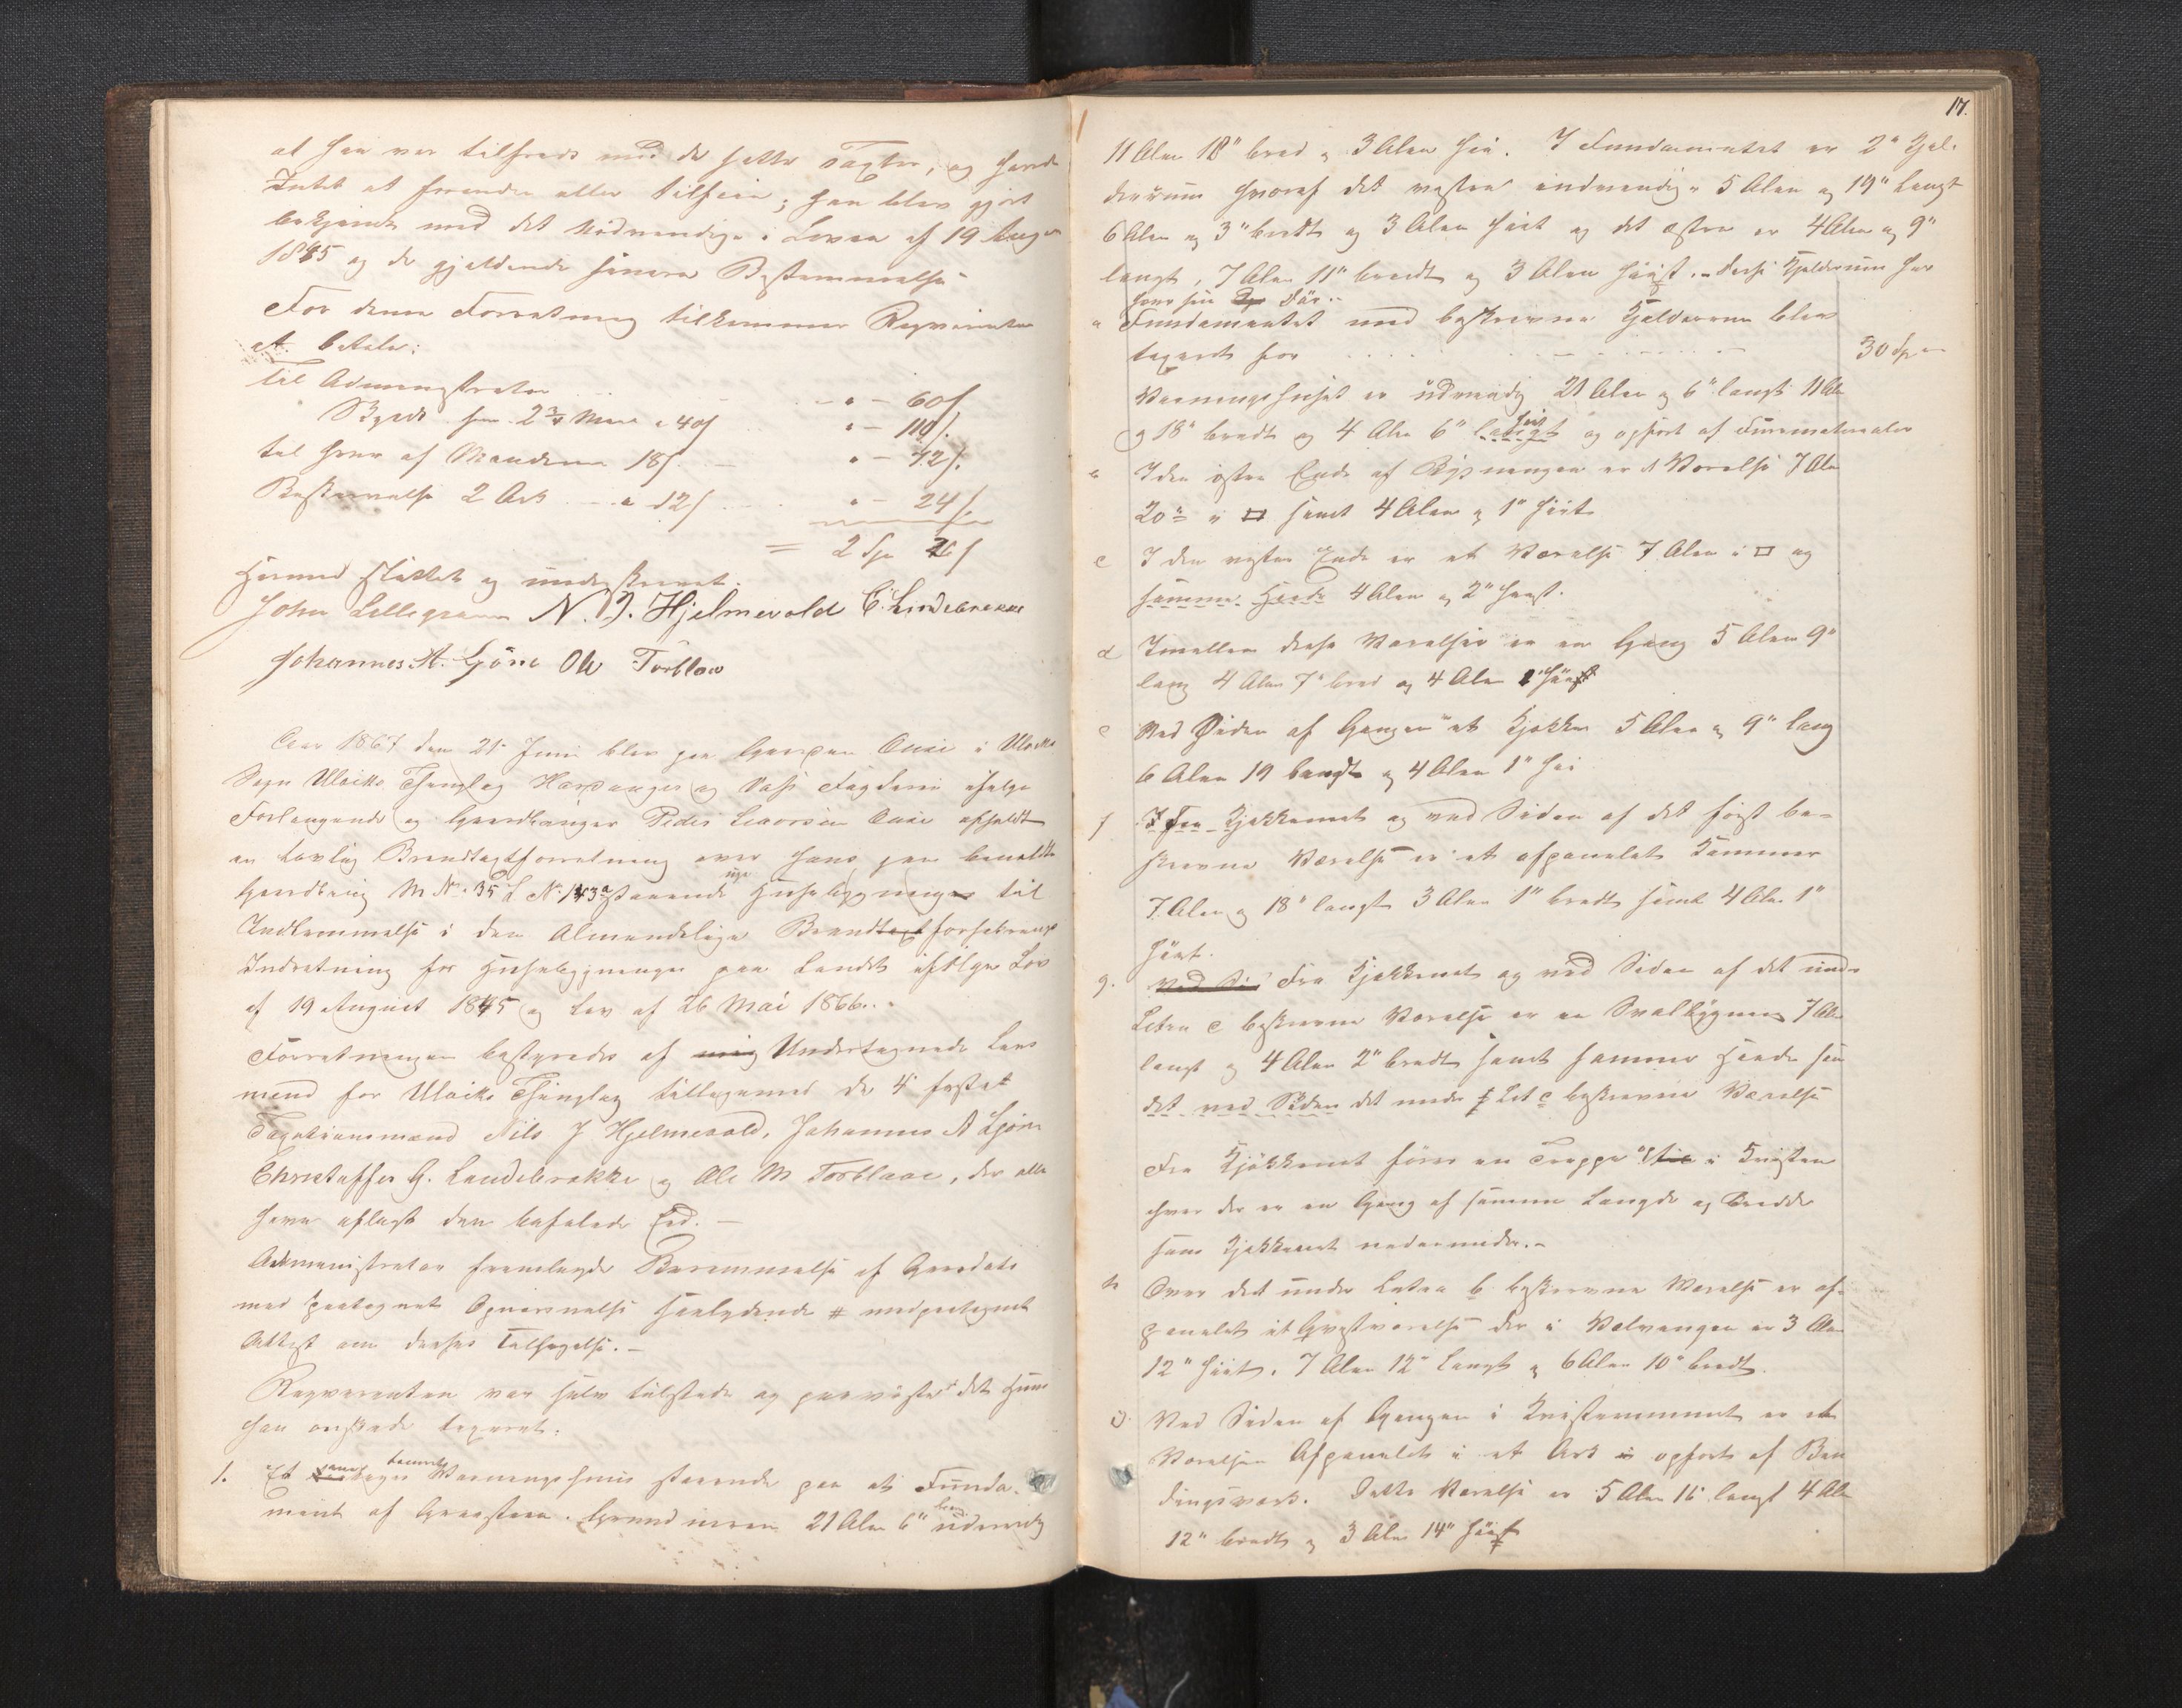 at han var tilfreds med de satte Taxter, og havde
Intet at forandre eller tilføie; han blev gjort
bekjendt med det Nødvendige i Loven af 19 August
1845 og de gjældende senere Bestemmelser
For denne Forretning tilkommer Requirenten
at betale:
Til Administrator - " - 60 ſ
Skyds for 2 3/4 Miil a 40 ſ " - 110 ſ.
til hver af Mændene 18 ſ. - " - 72 ſ.
Beskrivelse 2 Ark - a 12 ſ " - 24 ſ.
= 2 Spd 26 ſ
Hermed sluttet og underskrevet.
John Lillegraven N. J. Hjelmevold C. Lindebrekke
Johannes A. Gjöne Ole Torblaa
Aar 1867 den 21 Juni blev paa Gaarden i Ulviks
Sogn Ulviks Thinglag Hardanger og Voss Fogderie ifølge
Forlangende af Gaardbruger Peder afholdt
en lovlig Brandtaxtforretning over hans paa benævnte
Gaardbrug M No 35 L No 143a staaende nye Huusbygninger til
Indlemmelse i den Almindelige Brandforsikrings
Indretning for Huusbygninger paa Landet ifølge Lov
af 19 August 1845 og Lov af 26 Mai 1866.
Forretningen bestyredes af mig Undertegnede Lens
mand for Ulviks Thinglag tilligemed de 4 fastsat
Taxationsmænd Nils J Hjelmevold, Johannes A Gjöne
Christoffer G. Lindebrekke og Ole M Torblaa, der alle
have aflagt den befalede Eed. -
Administrator fremlagde Berammelse af Gaarsdato
med paategnet Opnævnelse saalydende # med paategnet
Attest om deres Tilsigelse. -
Requirenten var selv tilstede og paaviiste det Huus
han ønskede taxeret.
1. Et tømret Vaaningshuus staaende paa et Funda-
ment af Graasteen. Grundmuren 21 Alen 6" lang udvendig
17.
11 Alen 18" bred og 3 Alen høi. I Fundamentet er 2 Kjel-
derrum hvoraf det vestre indvendig 5 Alen og 19" langt
6 Alen og 3" bredt og 3 Alen høit og det østre er 4 Alen og 9"
langt, 7 Alen 11" bredt og 3 Alen høit. - Disse Kjelderrum har
hver sin Dør. -
a Fundamentet med beskrevne Kjelderrum blev
taxeret for - - - 30 Spd
Vaaningshuset er udvendig 21 Alen og 6" langt 11 Alen
og 18" bredt og 4 Alen 6" høit og opført af Furumaterialer
I den østre Ende af Bygningen er et Værelse 7 Alen
20" i □ samt 4 Alen og 1" høit
c I den vestre Ende er et Værelse 7 Alen i □ og
samme Høide 4 Alen og 2" høit.
d Imellem disse Værelser er en Gang 5 Alen 9"
lang 4 Alen 7" bred og 4 Alen 1" høi
e Ved Siden af Gangen et Kjøkken 5 Alen og 9" lang
6 Alen 19 bredt og 4 Alen 1" høi
f Fra Kjøkkenet og ved Siden af det først be-
skrevne Værelse er et afpanelet Kammer
7 Alen og 18" langt 3 Alen 1" bredt samt 4 Alen 1"
høit.
g. Ved Si Fra Kjøkkenet og ved Siden af det under
Litra c beskrevne Værelse er en Svalbygning 7 Alen
langt og 4 Alen 2" bredt samt samme Høide som
det ved Siden det under Lit c beskrevne Værelse
Fra Kjøkkenet fører en Trappe i Kvisten
hvor der er en Gang af samme Længde og Bredde
som Kjøkkenet nedenunder. -
h Over det under Litra b beskrevne Værelse er af-
panelet et Gjestværelse der i Hvælvingen er 3 Alen
12" høit, 7 Alen 12" langt og 6 Alen 10" bredt.
Ved Siden af Gangen i Kvistrummet er et
Værelse Afpanelet i et Ark opført af Bin
dingsværk. Dette Værelse er 5 Alen 16 langt 4 Alen
12" bredt og 3 Alen 14" høit